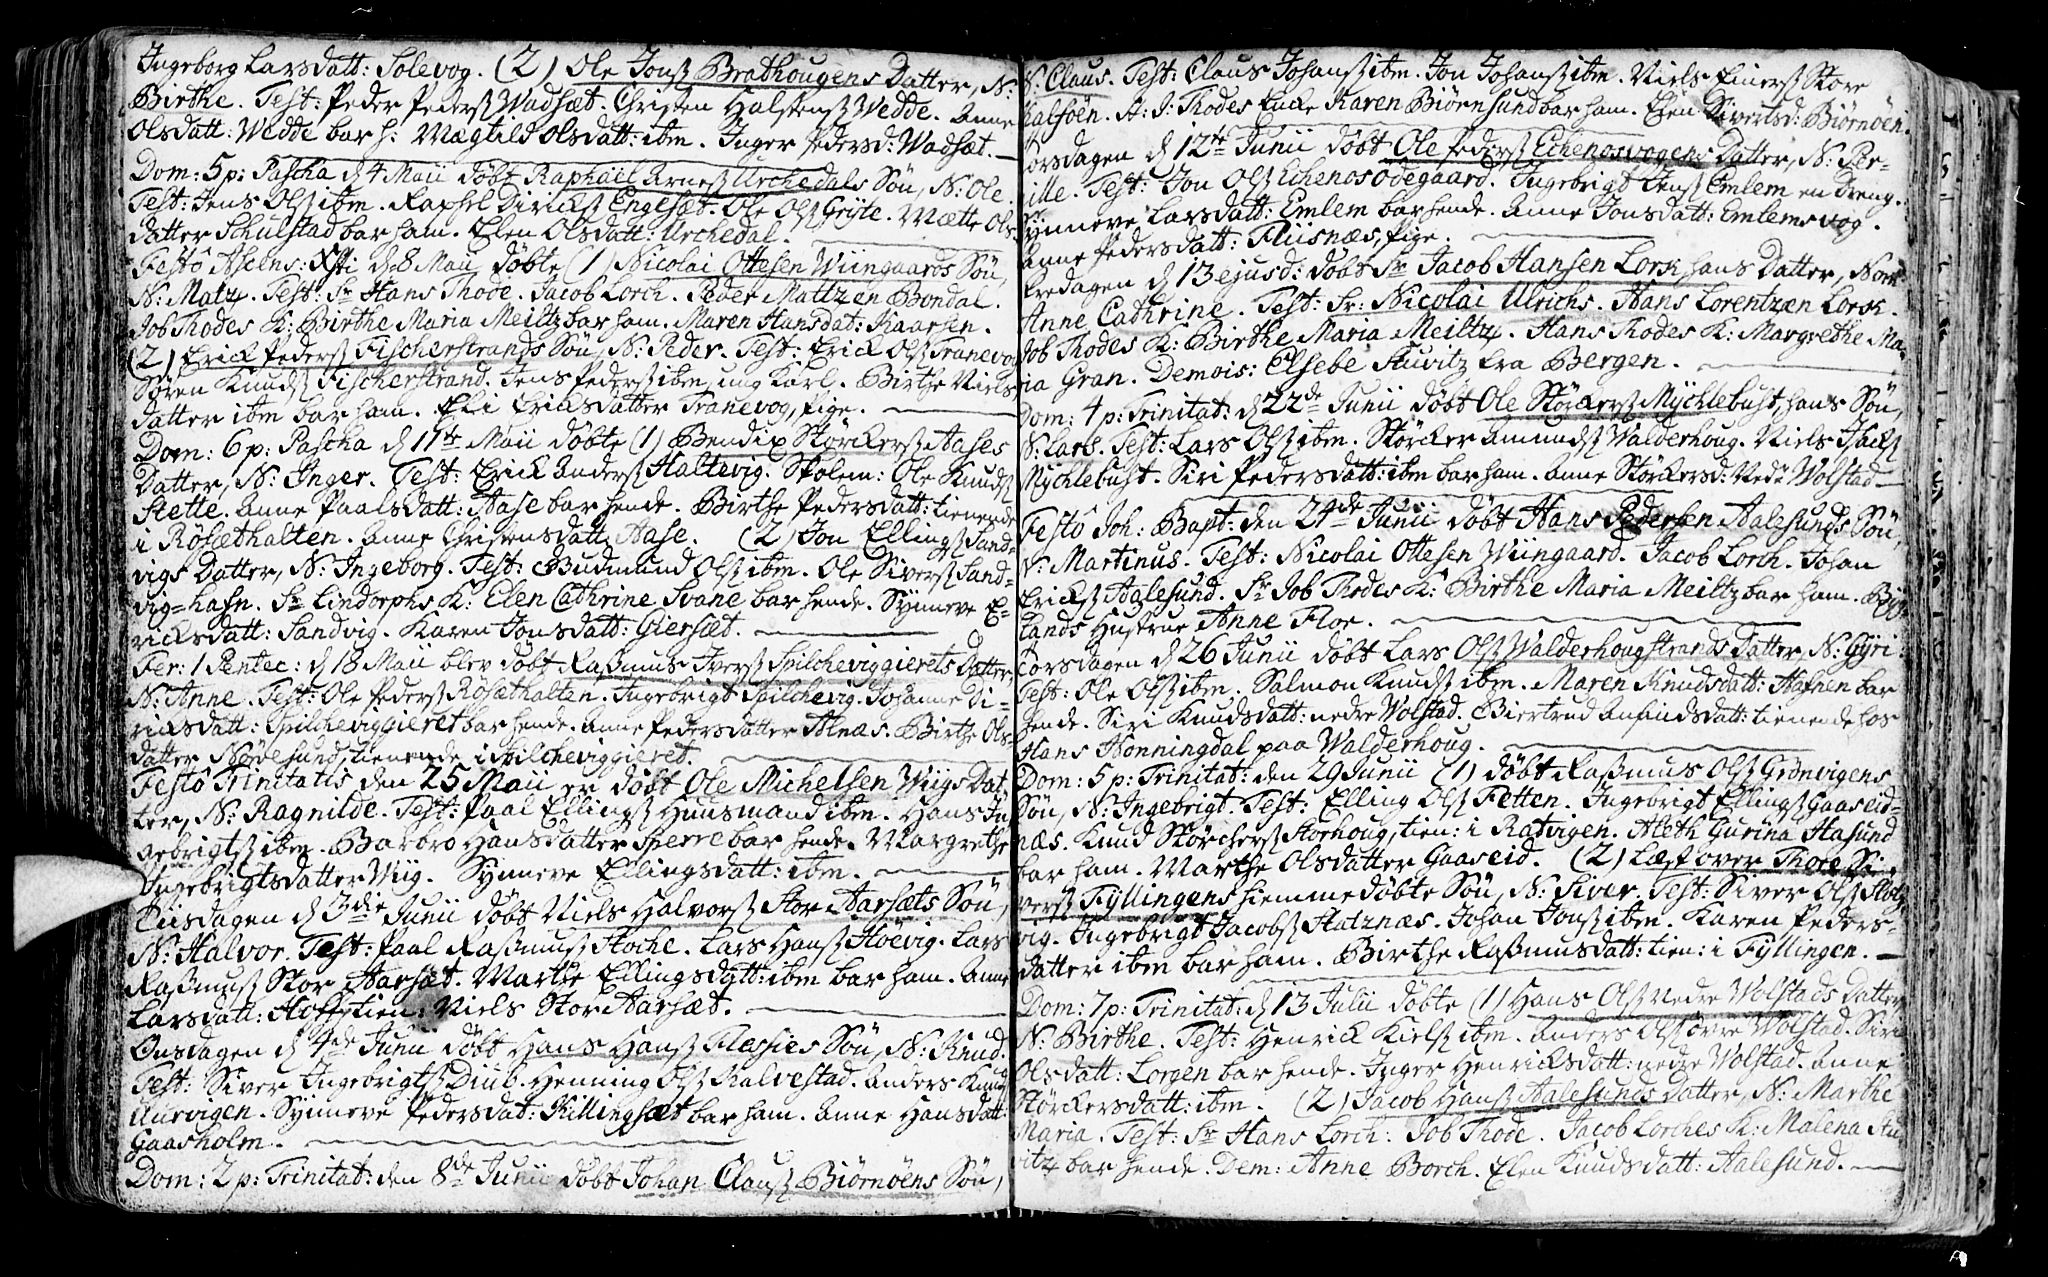 Ingeborg Larsdatt: Solevog. (2) Ole Jonsß Brathougens Datter, N:
Birthe. Test: Peder Pedersß Wadsæt. Christen Halstensß Wedde. Anne
Olsdatt: Wedde bar h: Mægtild Olsdatt: ibm. Inger Pedersd: Wadsæt.
Dom: 5 p: Pascha d 4 Maii døbt Raphael Arnesß Urchedals Søn, N: Ole.
Test: Jens Olsß ibm. Raphel Dircksß Engesæt. Ole Olsß Gryte. Mætte Ols-
datter Schulstad bar ham. Elen Olsdatt: Urchedal.
Festo Ascens: Xsti d 8 Maii døbte (1) Nicolai Ottesen Wiingaards Søn,
N: Matz. Test: Sr Hans Thode. Jacob Lorch. Peder Mattzen Bondal.
Job Thodes K: Birthe Maria Meiltz bar ham. Maren Hansdat: Kaarsen.
(2) Erick Pedersß Fischerstrands Søn, N: Peder. Test: Erick Olsß Tranevog
Søren Knudsß Fischerstrand. Jens Pedersß ibm, ung Karl. Birthe Niels-
datter ibm bar ham. Eli Ericksdatter Tranevog, pige.
Dom: 6 p: Pascha d 11te Maii døbte (1) Bendix Størckersß Aases
Datter, N: Inger. Test: Erick Andersß Haltevig. Skolem: Ole Knudsß
Slette. Anne Paalsdatt: Aase bar hende. Birthe Pedersdatt: tienende
i Røsæthalten. Anne Christensdatt: Aase. (2) Jon Ellingsß Sand-
vigs Datter, N: Ingeborg. Test: Gudmund Olsß ibm. Ole Siversß Sand-
vig-hafn. Sr Lindorphs K: Elen Cathrine Svane bar hende. Synneve E-
ricksdatt: Sandvig. Karen Jonsdatt: Giersæt.
Fer: 1 Pentec: d 18 Maii blev døbt Rasmus Iversß Spilcheviggierets Datter,
N: Anne. Test: Ole Pedersß Røsæthalten. Ingebrigt Spilchevig. Johanne Di-
ricksdatt: Spilcheviggieret bar hende. Anne Pedersdatter Alnæs. Birthe Ols-
datter Nørvesund, tienende i Spilcheviggieret.
Festo Trinitatis den 25 Maii er døbt Ole Michelsen Wiigs Dat-
ter, N: Ragnilde. Test: Paal Ellingsß Huusmand ibm. Hans In-
gebrigtsß ibm. Barbro Hansdatter Sperre bar hende. Margrethe
Ingebrigtsdatter Wiig. Synneve Ellingsdatt: ibm.
Tiisdagen d 3die Junii døbt Niels Halvorsß Stor Aarsæts Søn,
N: Halvor. Test: Paal Rasmusß Stoche. Lars Hansß Høevig. Lars
Rasmusß Stor Aarsæt. Marthe Ellingsdatt: ibm bar ham. Anne
Larsdatt: Hoff, tien: Niels Stor Aarsæt.
Onsdagen d 4de Junii døbt Hans Hansß Flessies Søn, N: Knud.
Test: Siver Ingebrigtsß Diub. Henning Olsß Kalvestad. Anders Knudsß
Aurvigen. Synneve Pedersdat: Killingsæt bar ham. Anne Hansdatt
Gaasholm.
Dom: 2 p: Trinitat: den 8de Junii døbt Johan Clausß Biørnøens Søn,
N: Claus. Test: Claus Johansß ibm. Jon Johansß ibm. Niels Einersß Store
Kalføen. A: J: Thodes Enke Karen Biørnsund bar ham. Elen Sivertsd: Biørnøen.
Torsdagen d 12te Junii døbt Ole Pedersß Echenosvogens Datter, N: Per-
nille. Test: Jon Olsß Echenosødegaard. Ingebrigt Jensß Emlem en Dreng.
Synneve Larsdatt: Emlem bar hende. Anne Jonsdatt: Emlemsvog.
Anne Pedersdatt: Fliisnæs, pige.
Fredagen d 13 ejusd: døbt Sr Jacob Hansen Lorck, hans Datter, N:
Anne Cathrine. Test: Sr: Nicolai Ulrichs. Hans Lorentzen Lorck.
Job Thodes K: Birthe Maria Meiltz. Hans Thodes K: Margrethe Ma-
ria Gran. Demois: Elsebe Stuvitz fra Bergen.
Dom: 4 p: Trinitat: d 22de Junii døbt Ole Størckersß Mychlebust, hans Søn,
N: Lars. Test: Lars Olsß ibm. Størcker Amundsß Walderhoug. Niels Isacksß
Mychlebust. Siri Pedersdatt: ibm bar ham. Anne Størckersd: Nedre Wolstad
Festo Joh: Bapt: den 24de Junii døbt Hans Pedersen Aalesunds Søn,
N: Martinus. Test: Nicolai Ottesen Wiingaard. Jacob Lorch. Johan
Ericksß Aalesund. Sr Job Thodes K: Birthe Maria Meiltz bar ham.
lands Hustrue Anne Floe.
Torsdagen d 26 Junii døbt Lars Olsß Walderhougstrands Datter, N: Gyri
Test: Ole Olsß ibm. Salmon Knudsß ibm. Maren Knudsdatt: Hafnen bar
hende. Siri Knudsdatt: nedre Wolstad. Giertrud Anfindsdatt: tienende hos
Hans Honningdal paa Walderhoug.
Dom: 5 p: Trinitat: den 29 Junii (1) døbt Rasmus Olsß Grønvigens
Søn, N: Ingebrigt. Test: Elling Olsß Fetten. Ingebrigt Ellingsß Gaaseid-
næs. Knud Størchersß Storhoug, tien: i Ratvigen. Aleth Gurina Hasund
bar ham. Marthe Olsdatter Gaaseid. (2) Læst over Thore Si-
versß Fyllingens hiemmedøbte Søn, N: Siver. Test: Siver Olsß
vig. Ingebrigt Jacobsß Slatznæs. Johan Jonsß ibm. Karen Peders-
datter ibm bar ham. Birthe Rasmusdatt: tien: i Fyllingen.
Dom: 7 p: Trinitat: d 13 Julii døbte (1) Hans Olsß Nedre Wolstads Datter,
N: Birthe. Test: Henrick Kielsß ibm. Anders Olsß øvre Wolstad. Siri
Olsdatt: Lorgen bar hende. Inger Henricksdatt: nedre Wolstad. Anne
Størckersdatt: ibm. (2) Jacob Hansß Aalesunds Datter, N: Marthe
Maria. Test: Sr Hans Lorch. Job Thode. Jacob Lorches K: Malena Stu-
vitz bar hende. Dem: Anne Borch. Elen Knudsdatt: Aalesund.